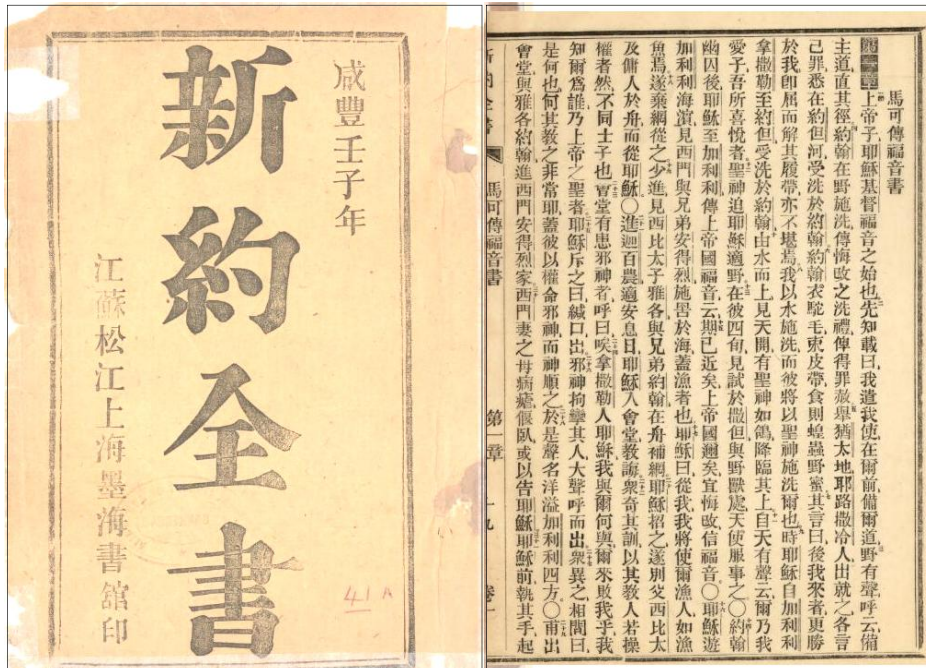 咸豐壬子年
新約全書
江蘇松江上海墨海書館印
41 A
馬可傳福音書
第一章上帝子耶穌基督福音之始也先知載曰我遣我使在爾前備爾道野有聲呼云備
主道直其徑約翰在野施洗傳悔改之洗禮俾得罪赦舉猶太地耶路撒冷人出就之各言
己罪悉在約但河受洗於約翰約翰衣駝毛束皮帶食則蝗蟲野蜜其言曰後我來者更勝
於我即屈而解其履帶亦不堪焉我以水施洗而彼將以聖神施洗爾也時耶穌自加利利
拿撒勒至約但受洗於約翰由水而上見天開有聖神如鴿降臨其上自天有聲云爾乃我
愛子吾所喜悅者聖神迫耶穌適野在彼四旬見試於撒但與野獸處天使服事之○約翰
幽囚後耶穌至加利利傳上帝國福音云期已近矣上帝國邇矣宜悔改信福音○耶穌遊
加利利海濱見西門與兄弟安得烈施罟於海蓋漁者也耶穌曰從我我將使爾漁人如漁
魚焉遂棄網從之少進見西比太子雅各與兄弟約翰在舟補網耶穌招之遂別父西比太
及傭人於舟而從耶穌○進迦百農適安息日耶穌入會堂教誨衆奇其訓以其教人若操
權者然不同士子也會堂有患邪神者呼曰唉拿撒勒人耶穌我與爾何與爾來敗我乎我
知爾爲誰乃上帝之聖者耶穌斥之曰緘口出邪神拘攣其人大聲呼而出衆異之相問曰
是何也何其教之非常耶蓋彼以權命邪神而神順之於是聲名洋溢加利利四方○甫出
會堂與雅各約翰進西門安得烈家西門妻之母病瘧偃臥或以告耶穌耶穌前執其手起
新約全書 馬可傳福音書 第一章 十九